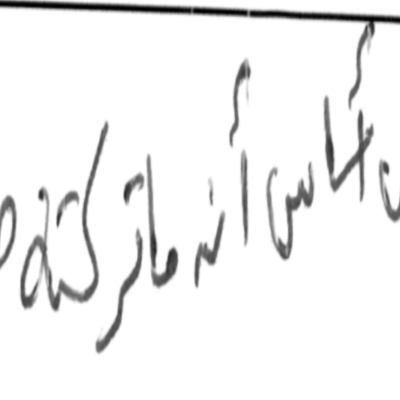 أساس أنه ما تركته